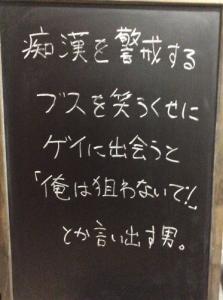 痴漢を警戒する
ブスを笑うくせに
ゲイに出会うと
「俺は狙わないで!」
とか言い出す男。